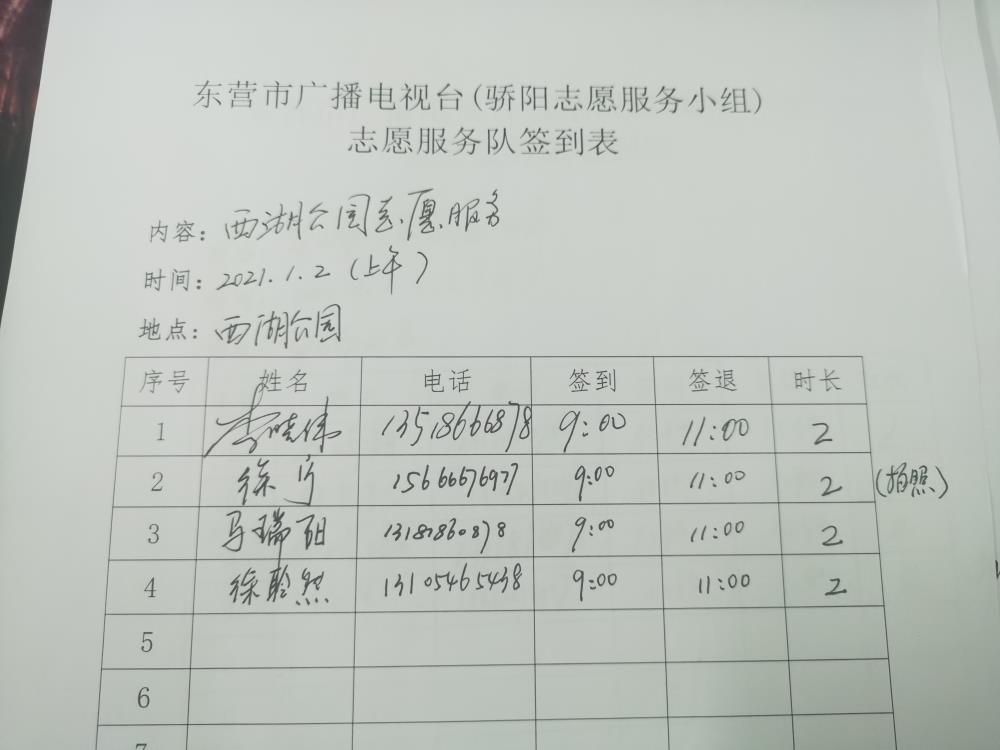 东营市广播电视台(骄阳志愿服务小组)
志愿服务队签到表
内容：西湖公园志愿服务
时间：2021.1.2（上午）
地点：西湖公园
序号 姓名 电话 签到 签退 时长
1 李晓伟 13518666878 9:00 11:00 2
2 徐宁 15666676977 9:00 11:00 2 (拍照)
3 马瑞 9:00 11:00 2
4 徐聆然 13105465438 9:00 11:00 2
5
6
7